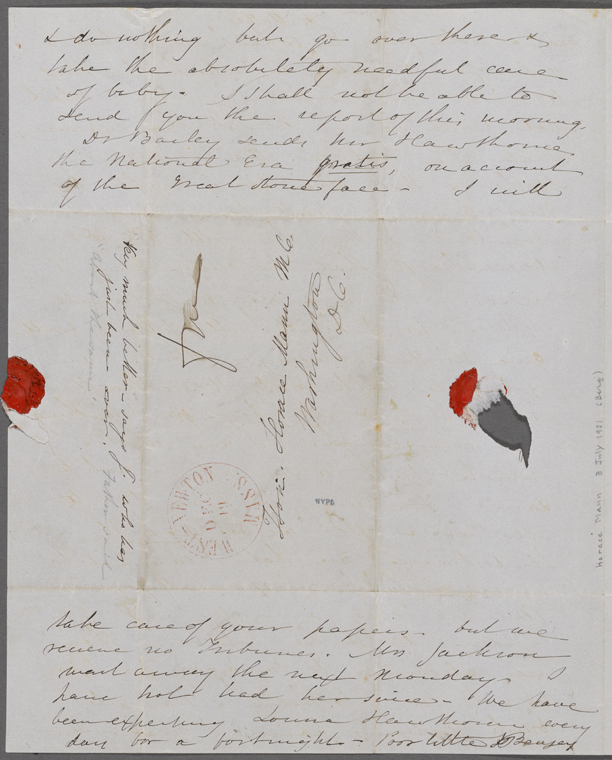 & do nothing but go over there &
take the absolutely needful care
of baby. I shall not be able to
send you the report of this morning.
Dr Bailey sends Mr Hawthorne
the National Era gratis, on account
of the Great Stone face - I will
Very much better - says J. who has
just been over. Father said
about the same.
free
Hon. Horace Mann M.C.
Washington
D.C.
WEST-NEWTON MASS
DEC
19
NYPL
Horace Mann 3 July 1971 (Berg)
take care of your papers. but we
receive no Tribunes. Mrs Jackson
went away the next Monday. I
have not had her since - We have
been expecting Louisa Hawthorne every
day for a fortnight - Poor little